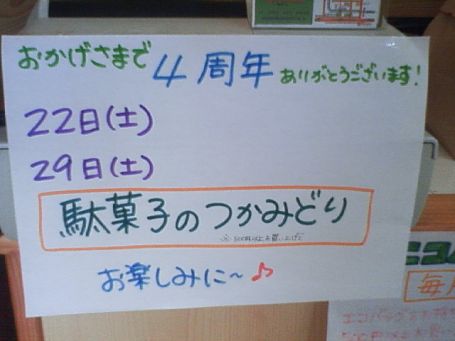 おかげさまで 4周年 ありがとうございます!
22日(土)
29日(土)
駄菓子のつかみどり
お楽しみに〜♪
毎月
エコバッグをお持